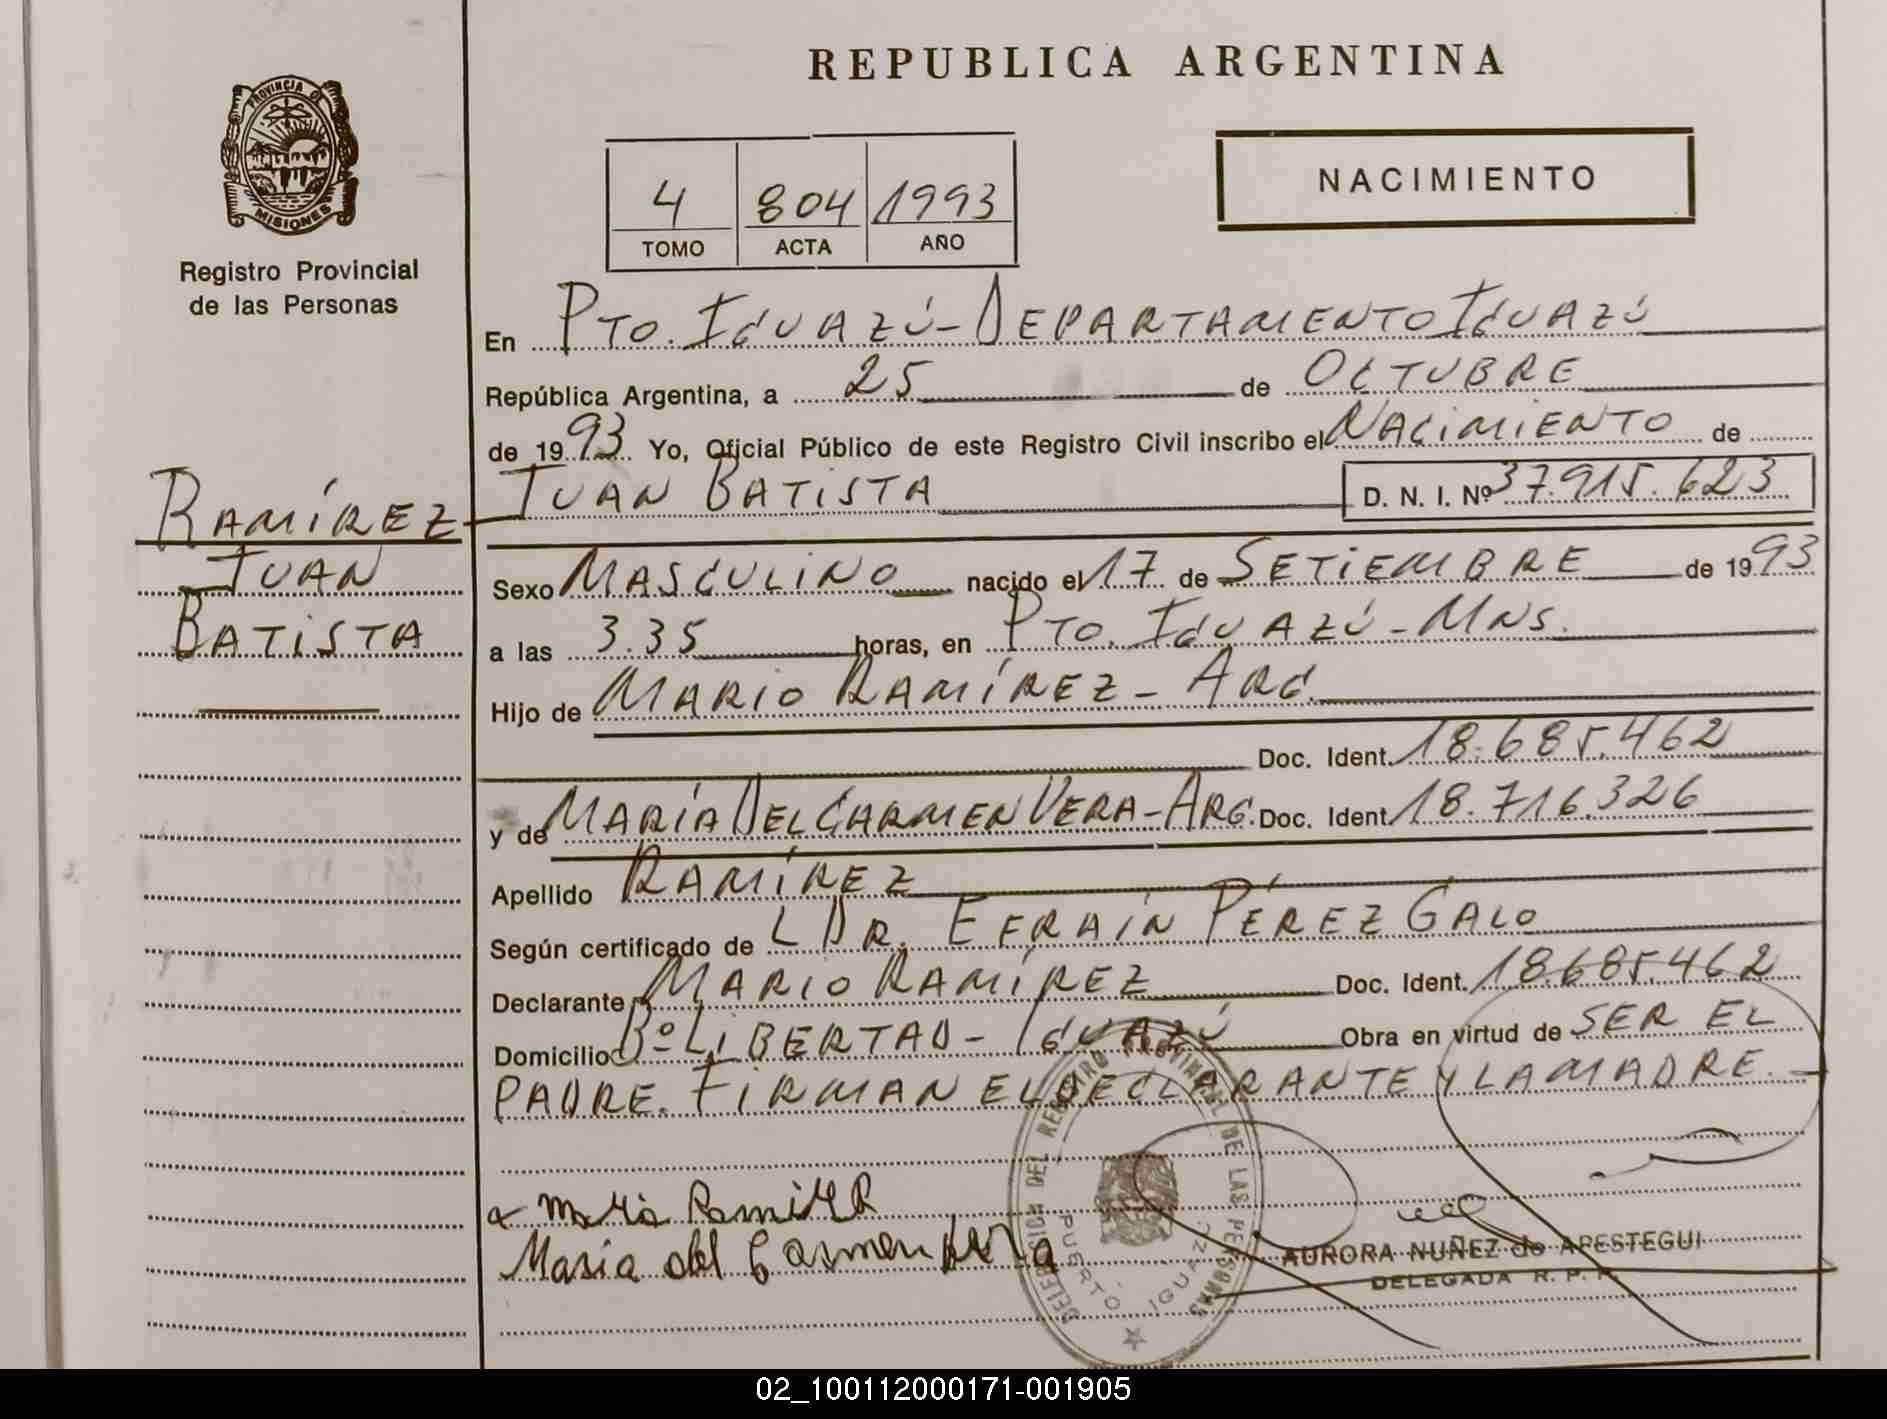 REPUBLICA ARGENTINA
PROVINCIA DE
MISIONES
Registro Provincial
de las Personas
4 804 1993
TOMO ACTA AÑO
NACIMIENTO
En PTO. IGUAZÚ - DEPARTAMENTO IGUAZÚ
República Argentina, a 25 de OCTUBRE
de 1993 Yo, Oficial Público de este Registro Civil inscribo el NACIMIENTO de
JUAN BATISTA D. N. I. Nº 37.915.623
RAMÍREZ
JUAN
BATISTA
Sexo MASCULINO nacido el 17 de SETIEMBRE de 1993
a las 3.35 horas, en PTO. IGUAZÚ - MNS.
Hijo de MARIO RAMÍREZ - ARG.
Doc. Ident. 18.685.462
y de MARÍA DEL CARMEN VERA - ARG. Doc. Ident. 18.716.326
Apellido RAMÍREZ
Según certificado de L DR. EFRAÍN PÉREZ GALO
Declarante MARIO RAMÍREZ Doc. Ident. 18.685.462
Domicilio Bº LIBERTAD - IGUAZÚ Obra en virtud de SER EL
PADRE. FIRMAN EL DECLARANTE Y LA MADRE.
Mario Ramirez
Maria del Carmen Vera
DELEGACION DEL REGISTRO PROVINCIAL DE LAS PERSONAS
PUERTO IGUAZU
AURORA NUÑEZ de APESTEGUI
DELEGADA R. P. P.
02_100112000171-001905